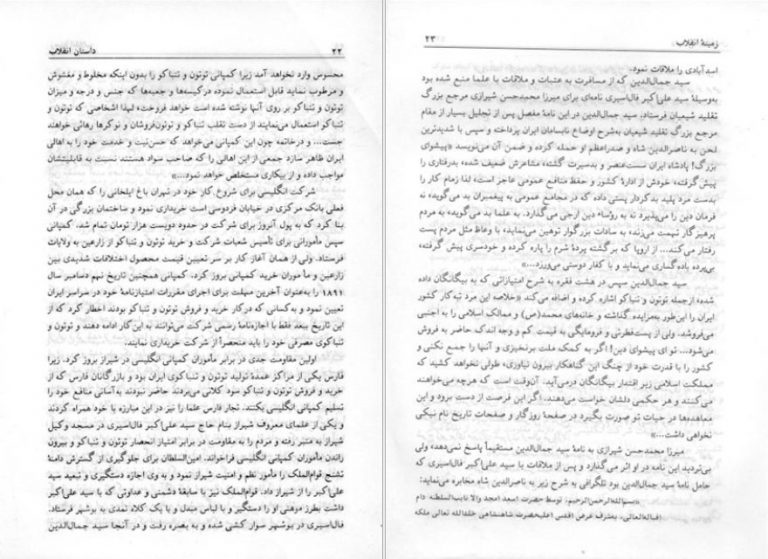 ۲۲ داستان انقلاب
محسوس وارد نخواهد آمد زیرا کمپانی توتون و تنباکو را بدون اینکه مخلوط و مغشوش
و مرطوب نماید قابل استعمال نموده در کیسه‌ها و جعبه‌ها که جنس و درجه و میزان
توتون و تنباکو بر روی آنها نوشته شده است خواهد فروخت، لهذا اشخاصی که توتون و
تنباکو استعمال می‌نمایند از دست تقلب تنباکو و توتون‌فروشان و نوکرها رهائی خواهند
جست... و درخاتمه چون این کمپانی می‌خواهد که حسن‌نیت و خدمت خود را به اهالی
ایران ظاهر سازد جمعی از این اهالی را که صاحب سواد هستند نسبت به قابلیتشان
مواجب داده و از بیکاری مستخلص خواهد نمود...»
شرکت انگلیسی برای شروع کار خود در تهران باغ ایلخانی را که همان محل
فعلی بانک مرکزی در خیابان فردوسی است خریداری نمود و ساختمان بزرگی در آن
بنا کرد که به پول آنروز برای شرکت در حدود دویست هزار تومان تمام شد. کمپانی
سپس مأمورانی برای تأسیس شعبات شرکت و خرید توتون و تنباکو از زارعین به ولایات
فرستاد. ولی از همان آغاز کار بر سر تعیین قیمت محصول اختلافات شدیدی بین
زارعین و مأموران خرید کمپانی بروز کرد. کمپانی همچنین تاریخ نهم دسامبر سال
۱۸۹۱ را به‌عنوان آخرین مهلت برای اجرای مقررات امتیازنامهٔ خود در سراسر ایران
تعیین نمود و به کسانی که در کار خرید و فروش توتون و تنباکو بودند اخطار کرد که از
این تاریخ ببعد فقط با اجازه‌نامهٔ رسمی شرکت می‌توانند به این کار ادامه دهند و توتون و
تنباکوی مصرفی خود را باید منحصراً از شرکت خریداری نمایند.
اولین مقاومت جدی در برابر مأموران کمپانی انگلیسی در شیراز بروز کرد. زیرا
فارس یکی از مراکز عمدهٔ تولید توتون و تنباکوی ایران بود و بازرگانان فارس که از
خرید و فروش توتون و تنباکو سود کلانی می‌بردند حاضر نبودند به‌آسانی منافع خود را
تسلیم کمپانی انگلیسی بکنند. تجار فارس علما را نیز در این مبارزه با خود همراه کردند
و یکی از علمای معروف شیراز بنام حاج سید علی‌اکبر فال‌اسیری در مسجد وکیل
شیراز به منبر رفته و مردم را به مقاومت در برابر امتیاز انحصار توتون و تنباکو و بیرون
راندن مأموران کمپانی انگلیسی فراخواند. امین‌السلطان برای جلوگیری از گسترش دامنهٔ
تشنج قوام‌الملک را مأمور نظم و امنیت شیراز نمود و به وی اجازه دستگیری و تبعید سید
علی‌اکبر را از شیراز داد. قوام‌الملک نیز با سابقهٔ دشمنی و عداوتی که با سید علی‌اکبر
داشت بطرز موهنی او را دستگیر و با لباس مبدل و با یک کلاه نمدی به بوشهر فرستاد.
فال‌اسیری در بوشهر سوار کشتی شده و به بصره رفت و در آنجا سید جمال‌الدین
زمینهٔ انقلاب ۲۳
اسدآبادی را ملاقات نمود.
سید جمال‌الدین که از مسافرت به عتبات و ملاقات با علما منع شده بود
به‌وسیلهٔ سید علی‌اکبر فال‌اسیری نامه‌ای برای میرزا محمدحسن شیرازی مرجع بزرگ
تقلید شیعیان فرستاد. سید جمال‌الدین در این نامهٔ مفصل پس از تجلیل بسیار از مقام
مرجع بزرگ تقلید شیعیان به‌شرح اوضاع نابسامان ایران پرداخته و سپس با شدیدترین
لحن به ناصرالدین شاه و صدراعظم او حمله کرده و ضمن آن می‌نویسد «پیشوای
بزرگ! پادشاه ایران سست‌عنصر و بدسیرت گشته، مشاعرش ضعیف شده، بدرفتاری را
پیش گرفته، خودش از ادارهٔ کشور و حفظ منافع عمومی عاجز است، لذا زمام کار را
بدست مرد پلید بدکردار پستی داده که در مجامع عمومی به پیغمبران بد می‌گوید، به
فرمان دین را نمی‌پذیرد، به رؤساء دین ارجی می‌گذارد. به علما بد می‌گوید، به مردم
پرهیزگار تهمت می‌زند، به سادات بزرگوار توهین می‌نماید، با وعاظ مثل مردم پست
رفتار می‌کند... از اروپا که برگشته پردهٔ شرم را پاره کرده و خودسری پیش گرفته،
بی‌پرده باده‌گساری می‌نماید و با کفار دوستی می‌ورزد...»
سید جمال‌الدین سپس در هشت فقره به شرح امتیازاتی که به بیگانگان داده
شده از جمله توتون و تنباکو اشاره کرده و اضافه می‌کند «خلاصه این مرد تبه‌کار کشور
ایران را این‌طور به‌مزایده گذاشته و خانه‌های محمد(ص) و ممالک اسلامی را به اجنبی
می‌فروشد. ولی از پست‌فطرتی و فرومایگی به قیمت کم و وجه اندک حاضر به فروش
می‌شود... تو ای پیشوای دین! اگر به کمک ملت برنخیزی و آنها را جمع نکنی و
کشور را با قدرت خود از چنگ این گناهکار بیرون نیاوری، طولی نخواهد کشید که
مملکت اسلامی زیر اقتدار بیگانگان درمی‌آید. آن‌وقت است که هرچه می‌خواهند
می‌کنند و هر حکمی دلشان خواست می‌دهند. اگر این فرصت از دست برود و این
معاهده‌ها در حیات تو صورت بگیرد در صفحهٔ روزگار و صفحات تاریخ نام نیکی
نخواهی داشت...»
میرزا محمدحسن شیرازی به نامهٔ سید جمال‌الدین مستقیماً پاسخ نمی‌دهد، ولی
بی‌تردید این نامه در او اثر می‌گذارد و پس از ملاقات با سید علی‌اکبر فال‌اسیری که
حامل نامهٔ سید جمال‌الدین بود تلگرافی به شرح زیر به ناصرالدین شاه مخابره می‌نماید:
«بسم‌الله الرحمن الرحیم. توسط حضرت اسعد امجد والا نایب السلطنه دام
اقباله‌العالی، بعرض اقدس اعلیحضرت شاهنشاهی خلدالله تعالی ملکه